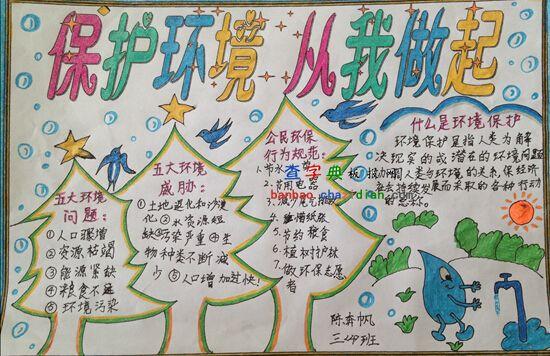 保护环境 从我做起
五大环境
问题：
①人口骤增
②资源枯竭
③能源紧缺
④粮食不足
⑤环境污染
五大环境
威胁：
①土地退化和沙漠
化②水资源短
缺③污染严重④生
物种类不断减
少⑤人口增加过快！
公民环保
行为规范：
1.节水
2.节用电器
3.减少尾气排放
4.珍惜纸张
5.节约粮食
6.植树护林
7.做环保志愿
者
什么是环境保护
环境保护是指人类为解
决现实的或潜在的环境问题
人类与环境的关系,保经济
社会持续发展而采取的各种行动
的总称。
陈奔帆
三(4)班
查字典
板报网
banbao.chazidian.com